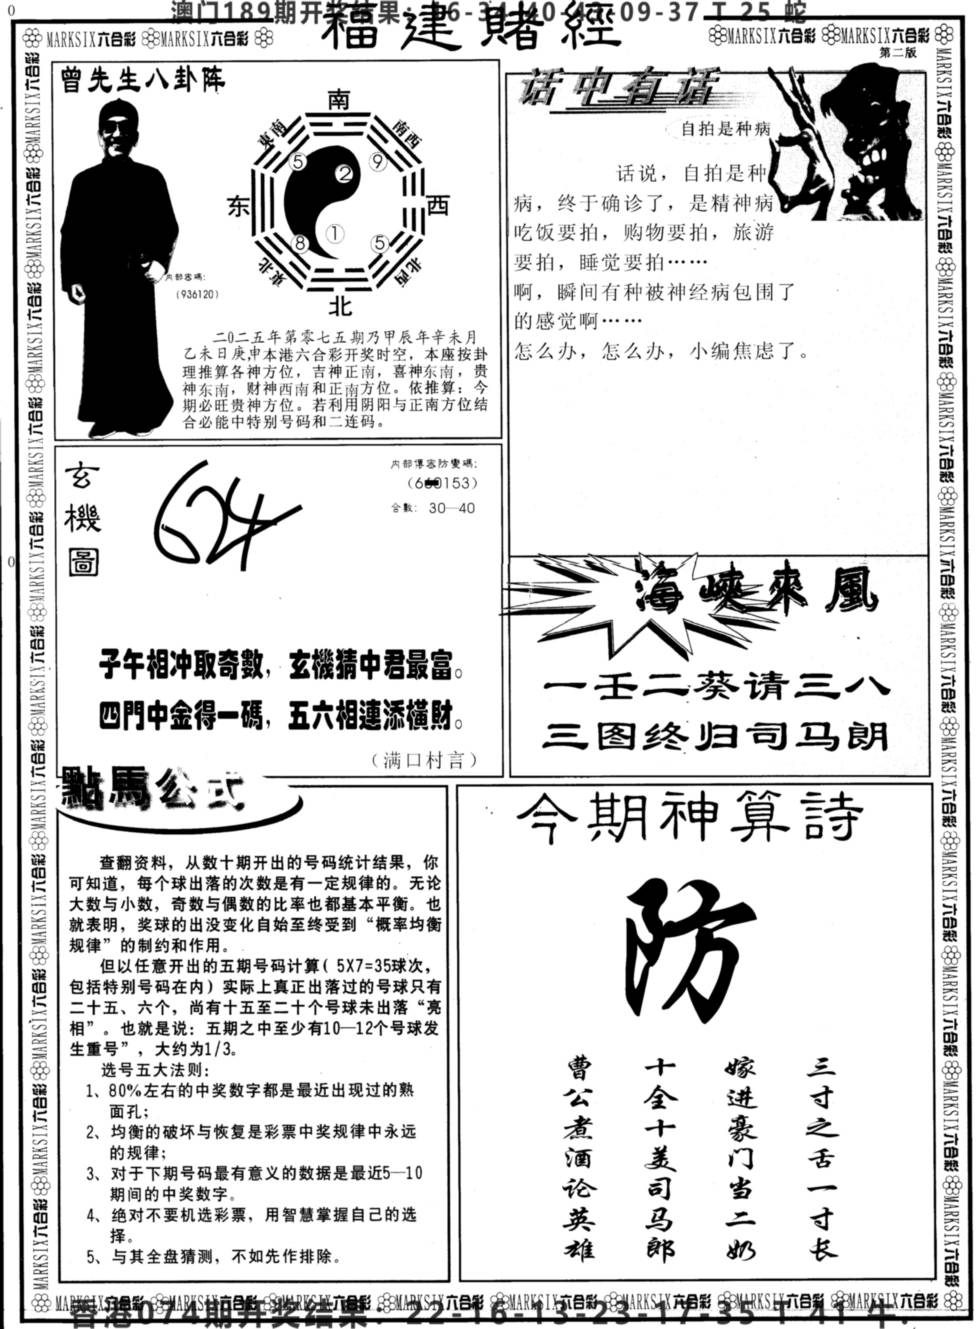 澳门189期开奖结果:
09-37 T 25 蛇
福建賭經
MARKSIX六合彩 MARKSIX六合彩
MARKSIX六合彩 MARKSIX六合彩
第二版
曾先生八卦阵
南
東南
南西
⑤
②
⑨
东
西
①
⑧
⑤
東北
北西
北
内部密碼:
(936120)
二〇二五年第零七五期乃甲辰年辛未月
乙未日庚申本港六合彩开奖时空，本座按卦
理推算各神方位，吉神正南，喜神东南，贵
神东南，财神西南和正南方位。依推算：今
期必旺贵神方位。若利用阴阳与正南方位结
合必能中特别号码和二连码。
话中有话
自拍是种病
话说，自拍是种
病，终于确诊了，是精神病
吃饭要拍，购物要拍，旅游
要拍，睡觉要拍……
啊，瞬间有种被神经病包围了
的感觉啊……
怎么办，怎么办，小编焦虑了。
玄機圖
624
内部傳密防變碼:
0153)
合數: 30—40
子午相冲取奇數，玄機猜中君最富。
四門中金得一碼，五六相連添橫財。
(满口村言)
海峽來風
一壬二葵请三八
三图终归司马朗
點馬公式
查翻资料，从数十期开出的号码统计结果，你
可知道，每个球出落的次数是有一定规律的。无论
大数与小数，奇数与偶数的比率也都基本平衡。也
就表明，奖球的出没变化自始至终受到“概率均衡
规律”的制约和作用。
但以任意开出的五期号码计算( 5X7=35球次，
包括特别号码在内) 实际上真正出落过的号球只有
二十五、六个，尚有十五至二十个号球未出落“亮
相”。也就是说：五期之中至少有10—12个号球发
生重号”，大约为1/3。
选号五大法则：
1、80%左右的中奖数字都是最近出现过的熟
面孔；
2、均衡的破坏与恢复是彩票中奖规律中永远
的规律；
3、对于下期号码最有意义的数据是最近5—10
期间的中奖数字。
4、绝对不要机选彩票，用智慧掌握自己的选
择。
5、与其全盘猜测，不如先作排除。
今期神算詩
防
三寸之舌一寸长
嫁进豪门当二奶
十全十美司马郎
曹公煮酒论英雄
香港074期开奖结果: 22-16-13-23-17-35 T 41 牛.